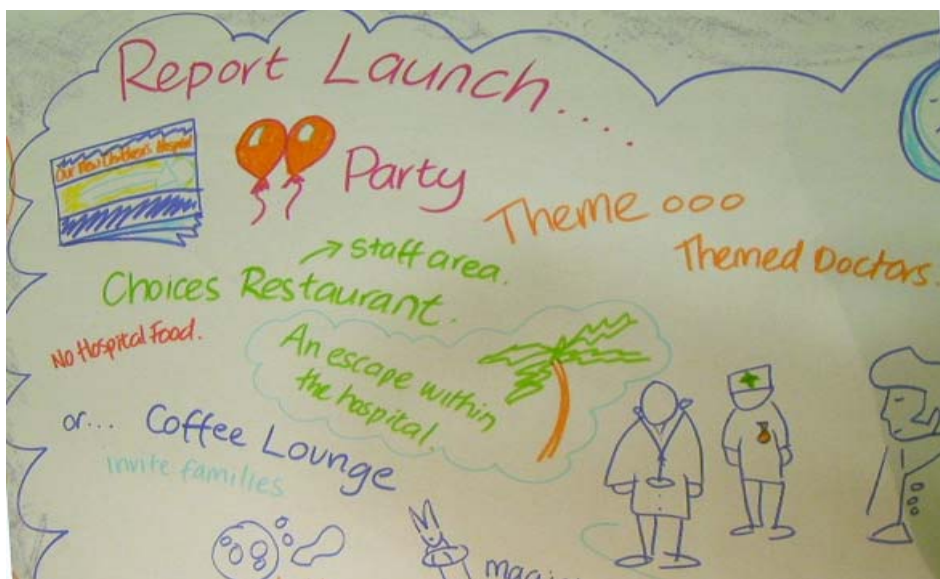 Report Launch....
Our New Children's Hospital
Party
Theme ooo
Themed Doctors.
→ staff area.
Choices Restaurant.
No Hospital Food.
An escape within
the hospital.
or... Coffee Lounge
invite families